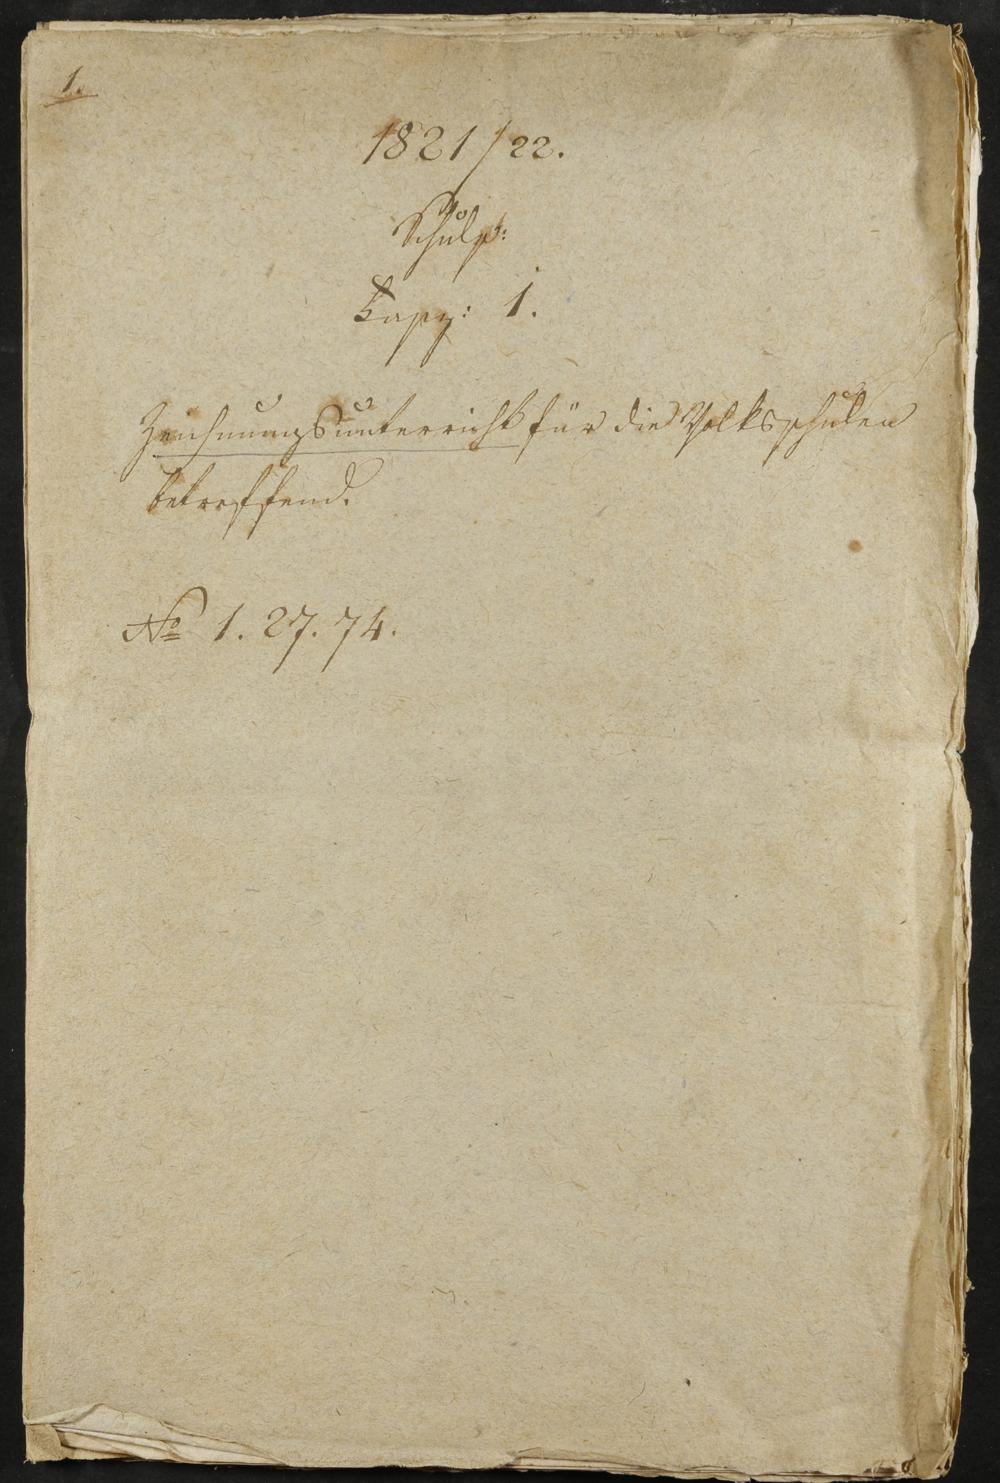 1.
1821/22.
Schuls:
Kapp: 1.
Zeichnungsunterricht für die Volksschulen
betreffend.
No 1. 27. 74.